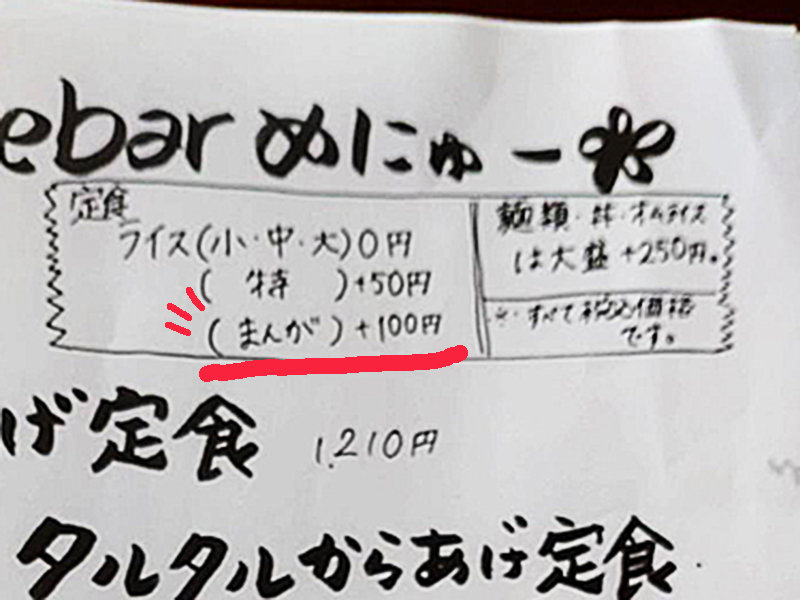 ebar めにゅー
定食
ライス(小・中・大)0円
(特)+50円
(まんが)+100円
麺類・丼・オムライス
は大盛+250円。
※すべて税込価格
です。
げ定食 1,210円
タルタルからあげ定食